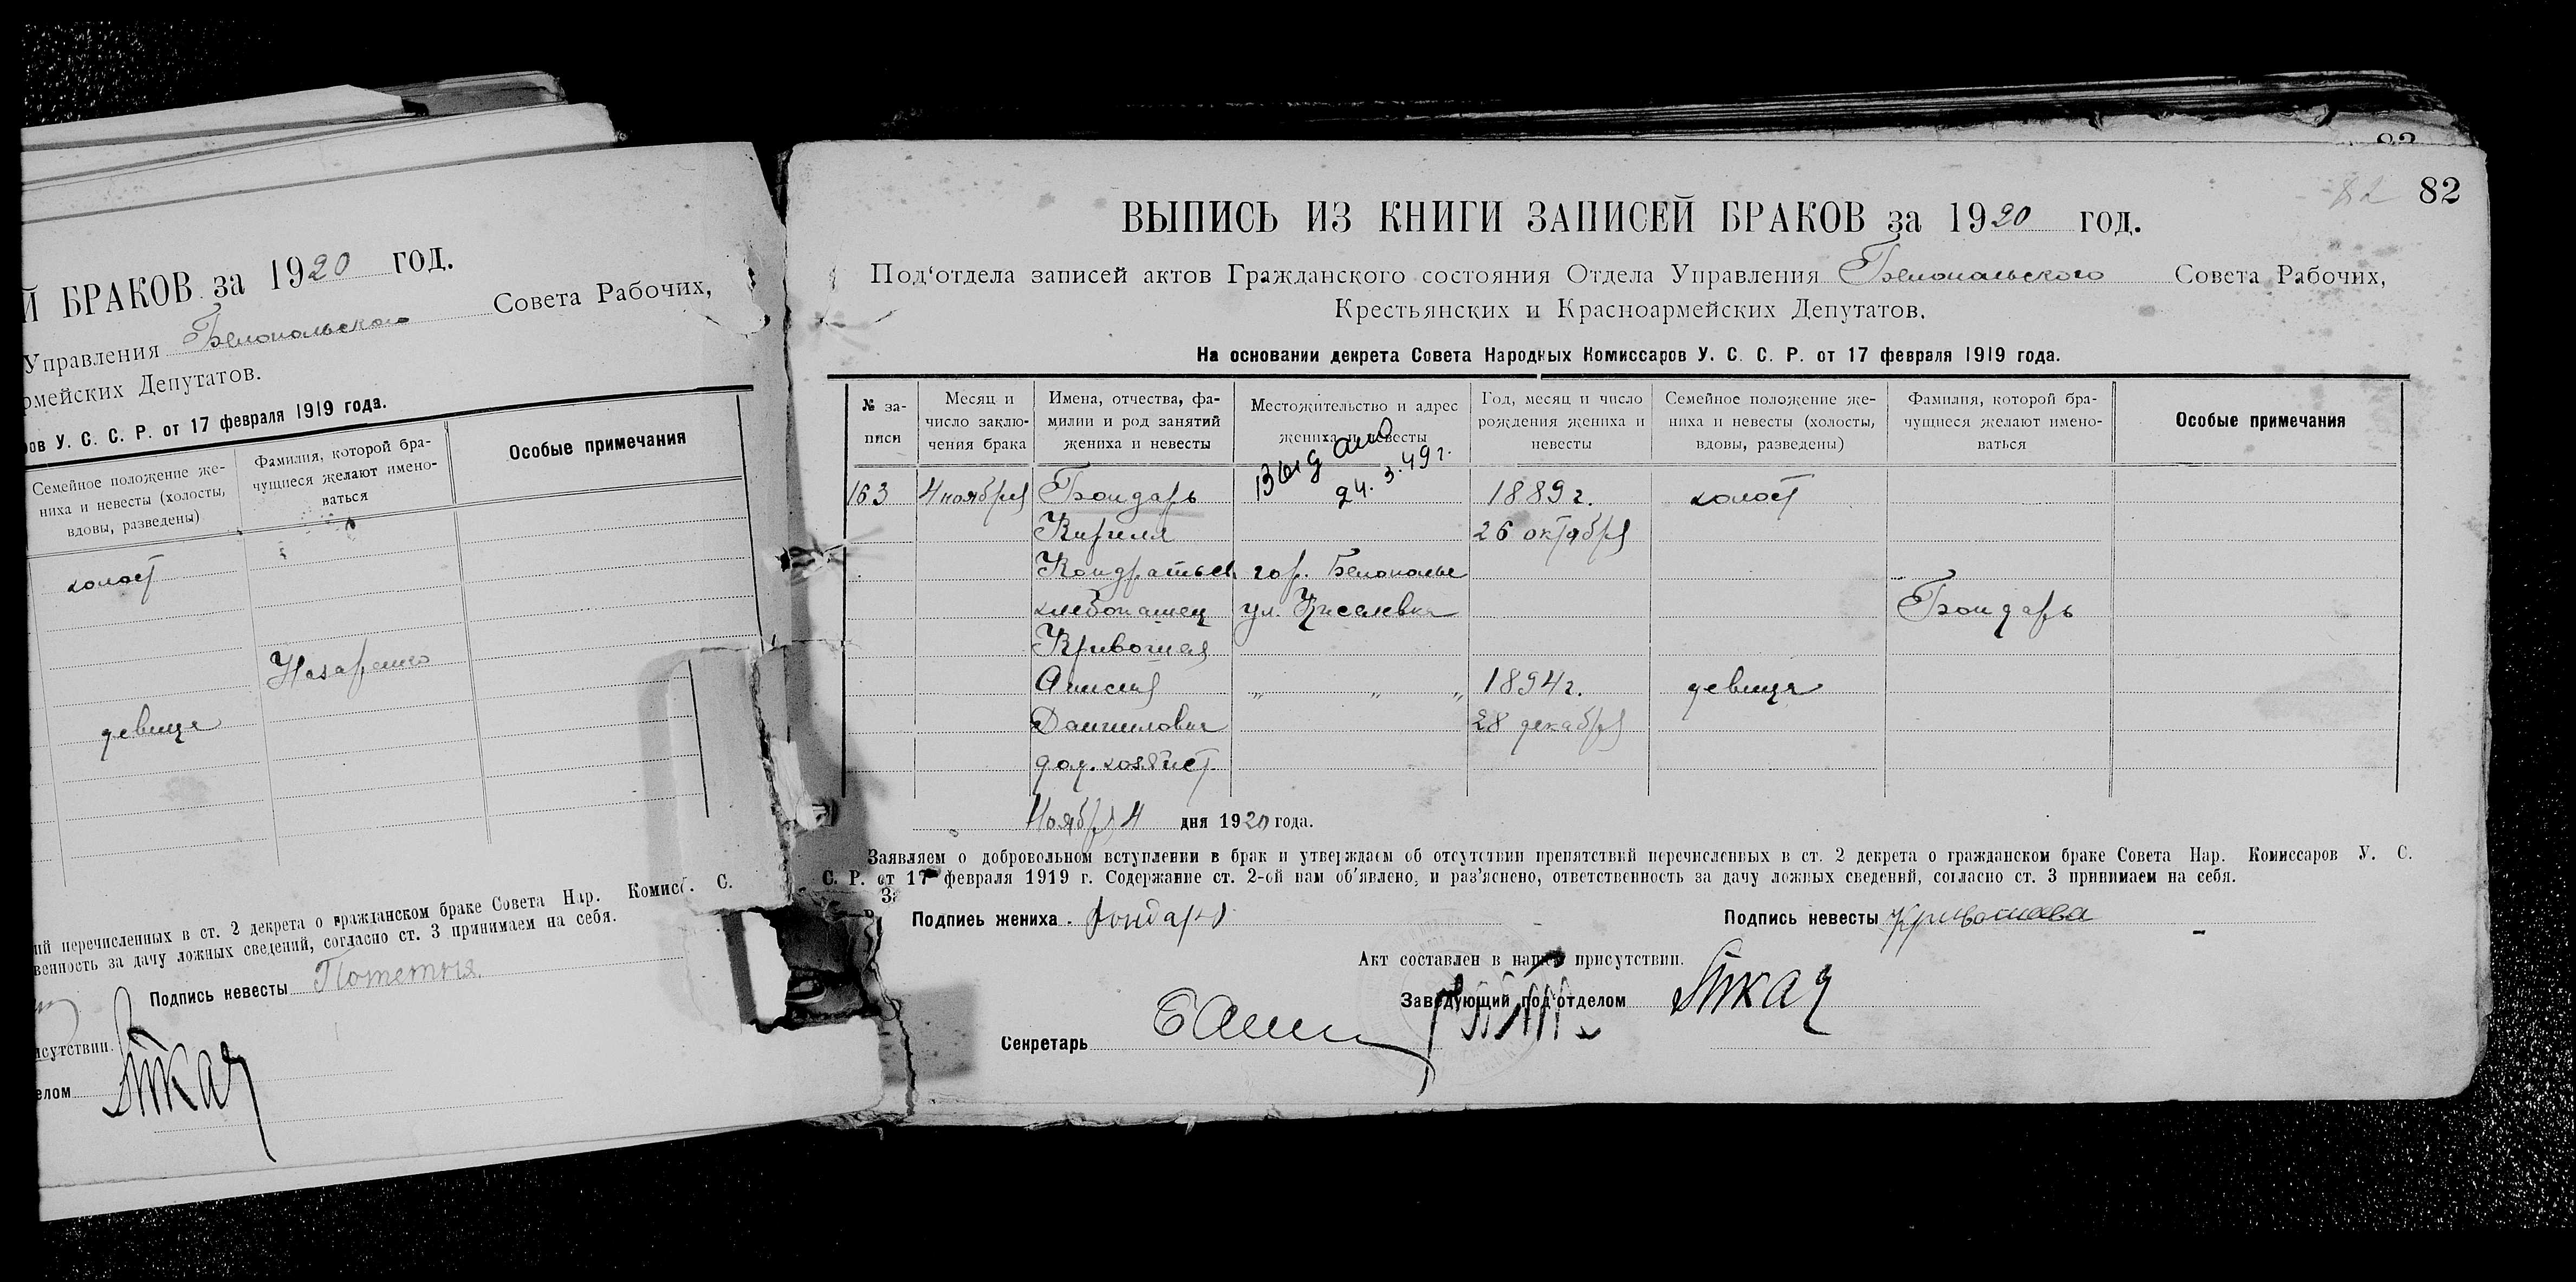 Й БРАКОВ за 1920 год.
Управления Белопольского Совета Рабочих,
рмейских Депутатов.
ров У. С. С. Р. от 17 февраля 1919 года.
Семейное положение же-
ниха и невесты (холосты,
вдовы, разведены)
Фамилия, которой бра-
чущиеся желают имено-
ваться
Особые примечания
холост
Назаренко
девица
ий перечисленных в ст. 2 декрета о гражданском браке Совета Нар. Комисс. С.
венность за дачу ложных сведений, согласно ст. 3 принимаем на себя.
Подпись невесты
исутствии.
елом Ткач
82
82
82
ВЫПИСЬ ИЗ КНИГИ ЗАПИСЕЙ БРАКОВ за 1920 год.
Под'отдела записей актов Гражданского состояния Отдела Управления Белопольского Совета Рабочих,
Крестьянских и Красноармейских Депутатов.
На основании декрета Совета Народных Комиссаров У. С. С. Р. от 17 февраля 1919 года.
№ за-
писи
Месяц и
число заклю-
чения брака
Имена, отчества, фа-
милии и род занятий
жениха и невесты
Местожительство и адрес
жениха и невесты
Год, месяц и число
рождения жениха и
невесты
Семейное положение же-
ниха и невесты (холосты,
вдовы, разведены)
Фамилия, которой бра-
чущиеся желают имено-
ваться
Особые примечания
Выдано
24. 3. 49 г.
163 4 ноября Бондарь 1889 г. холост
Кирилл 26 октября
Кондратьев гор. Белополье
хлебопашец ул. Киселевка Бондарь
Кривошея
Анисия " " " 1894 г. девица
Данииловна 28 декабря
дом. хозяйст
Ноября 4 дня 1920 года.
Заявляем о добровольном вступлении в брак и утверждаем об отсутствии препятствий перечисленных в ст. 2 декрета о гражданском браке Совета Нар. Комиссаров У. С.
С. Р. от 17 февраля 1919 г. Содержание ст. 2-ой нам об'явлено, и раз'яснено, ответственность за дачу ложных сведений, согласно ст. 3 принимаем на себя.
За
Подпись жениха Бондарь Подпись невесты Кривошева
Акт составлен в нашем присутствии.
Заведующий под'отделом Ткач
Секретарь